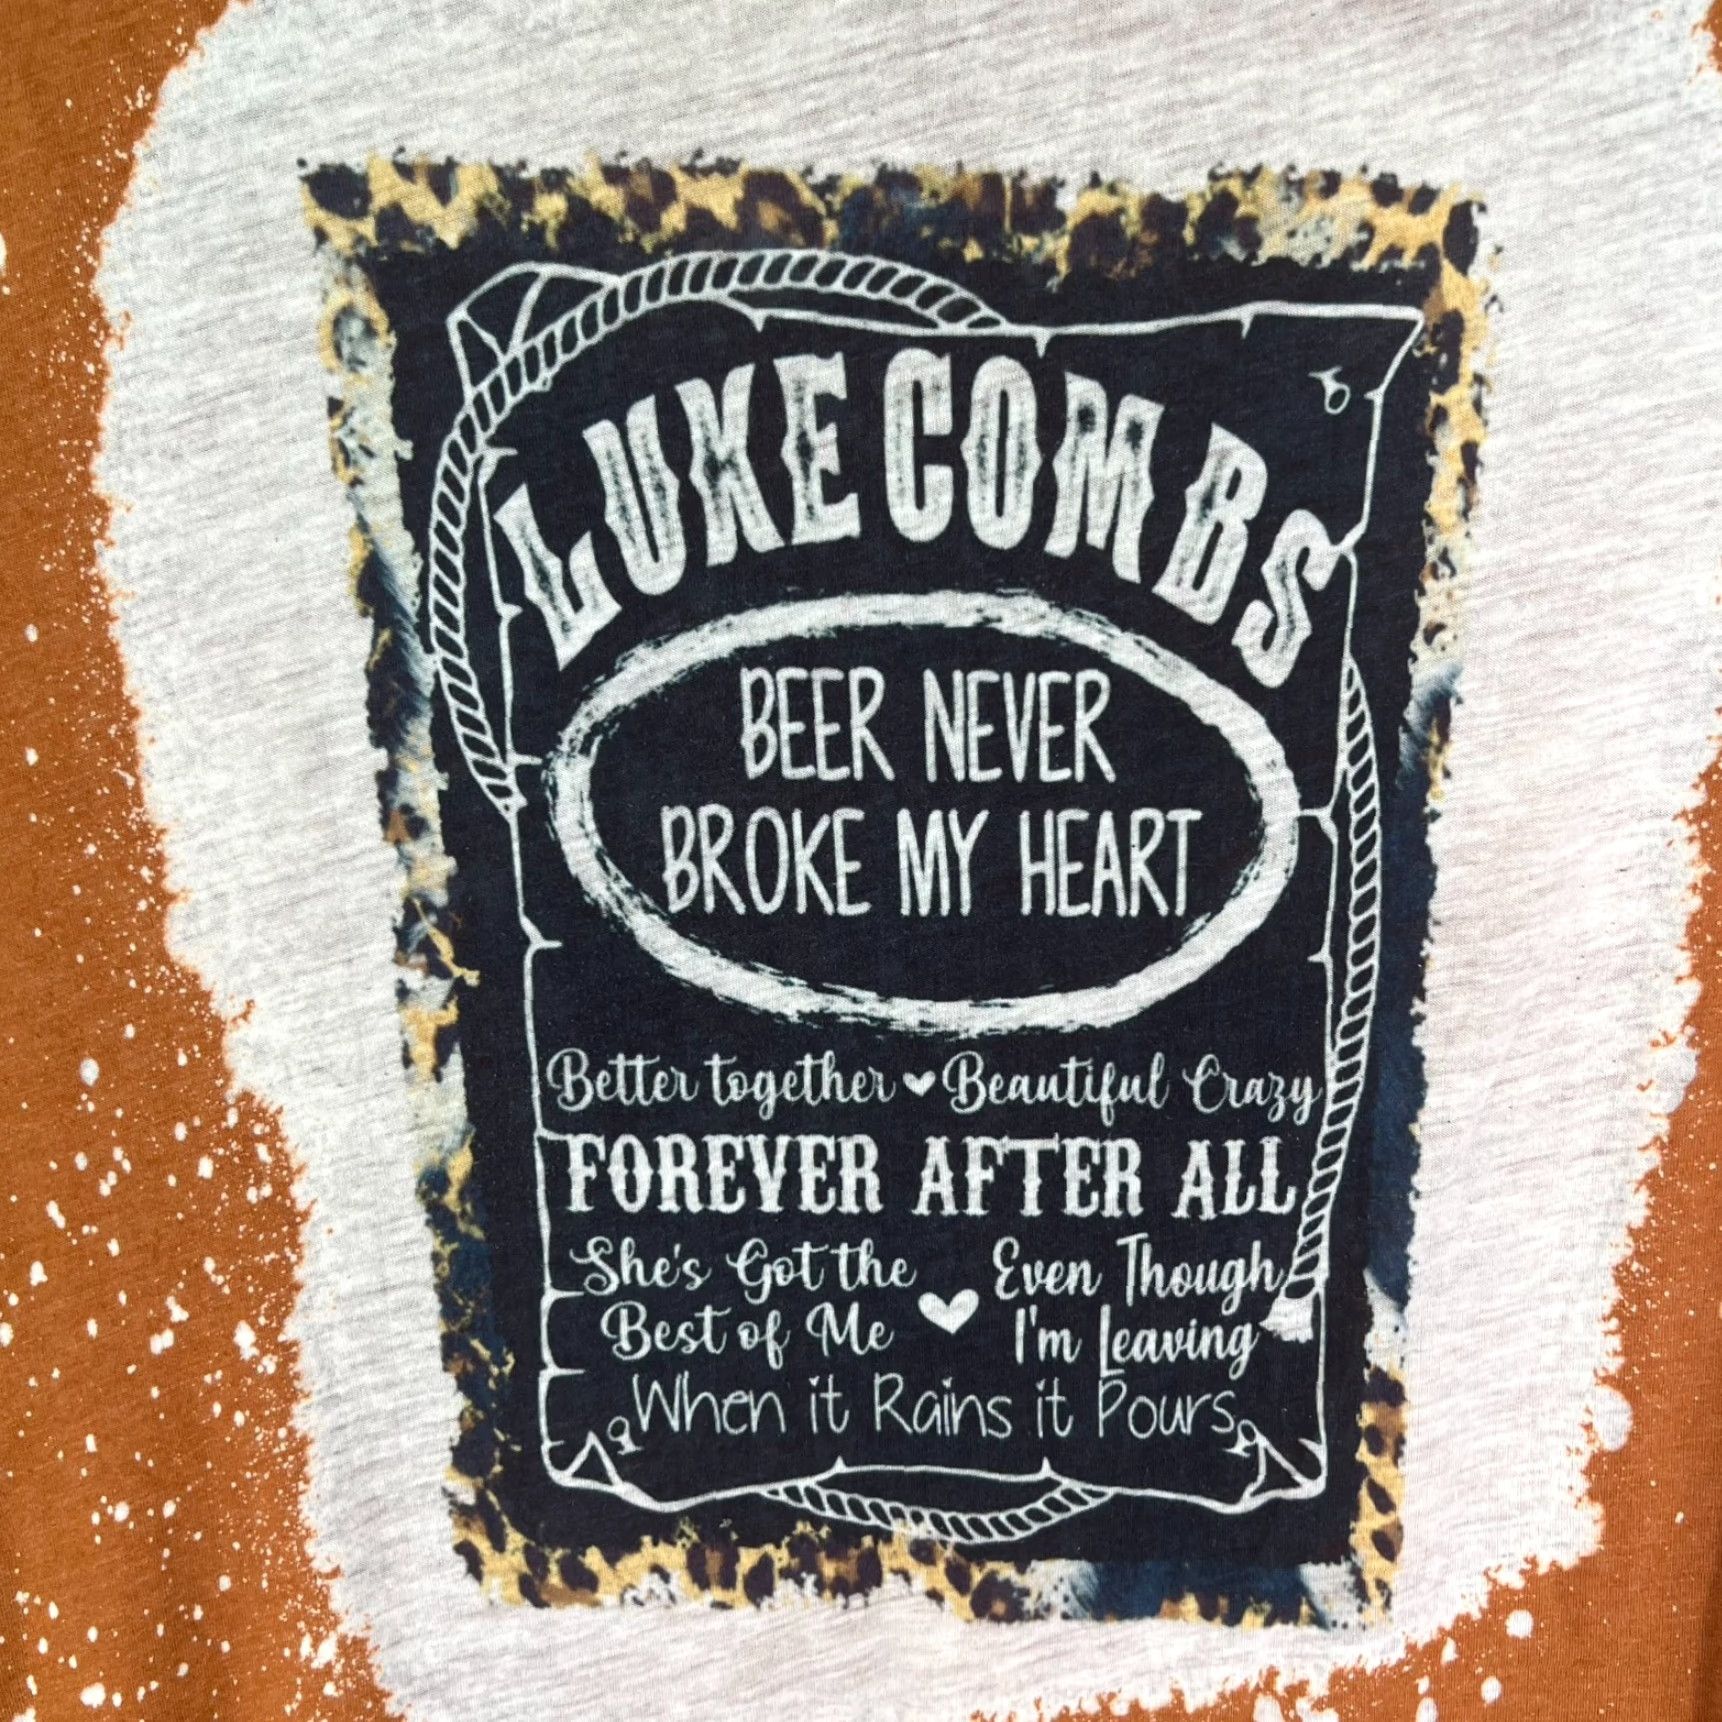 LUKE COMBS
BEER NEVER
BROKE MY HEART
Better together Beautiful Crazy
FOREVER AFTER ALL
She's Got the Even Though
Best of Me I'm Leaving
When it Rains it Pours